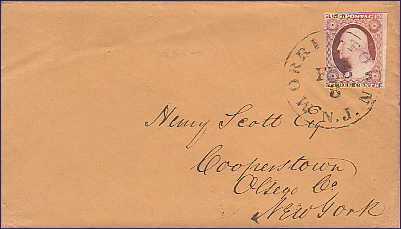 U.S. POSTAGE
THREE CENTS
MORRISTOWN
FEB
6
N.J.
Henry Scott Esq
Cooperstown
Otsego Co.
New York